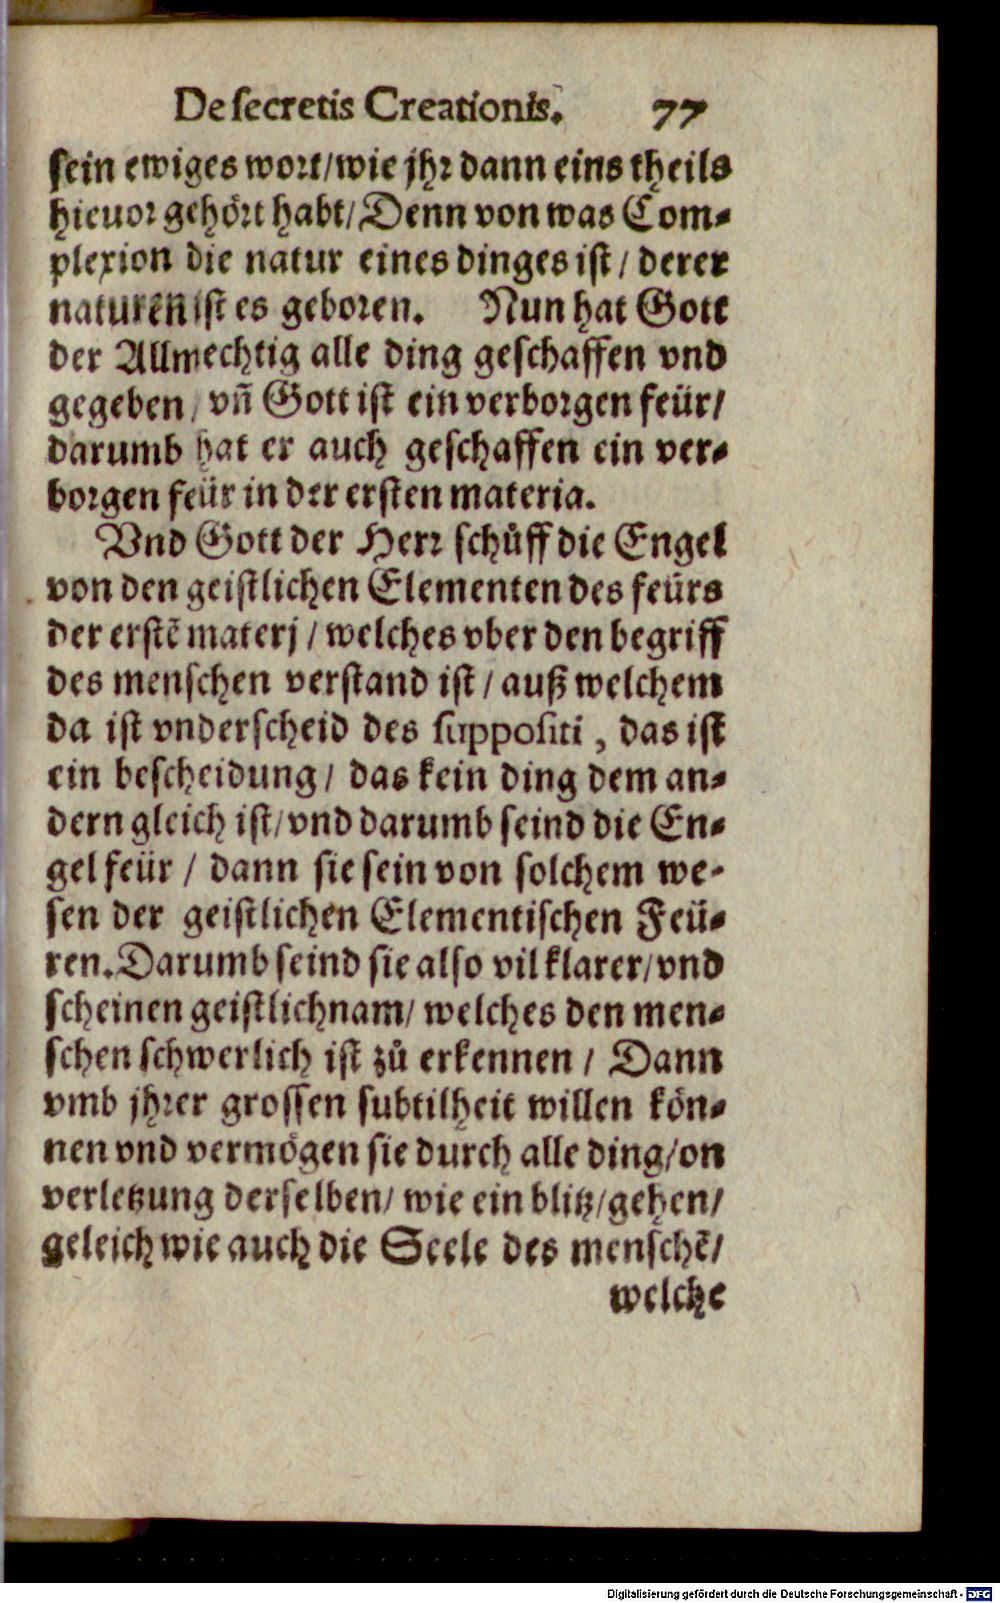 De secretis Creationis. 77
sein ewiges wort/wie jhr dann eins theils
hieuor gehört habt/Denn von was Com-
plexion die natur eines dinges ist/ derer
naturen ist es geboren. Nun hat Gott
der Allmechtig alle ding geschaffen vnd
gegeben/ vñ Gott ist ein verborgen feür/
darumb hat er auch geschaffen ein ver-
borgen feür in der ersten materia.
Vnd Gott der Herr schůff die Engel
von den geistlichen Elementen des feürs
der erstẽ materj/ welches vber den begriff
des menschen verstand ist/ auß welchem
da ist vnderscheid des suppositi, das ist
ein bescheidung/ das kein ding dem an-
dern gleich ist/vnd darumb seind die En-
gel feür/ dann sie sein von solchem we-
sen der geistlichen Elementischen Feü-
ren.Darumb seind sie also vil klarer/vnd
scheinen geistlichnam/ welches den men-
schen schwerlich ist zů erkennen/ Dann
vmb jhrer grossen subtilheit willen kön-
nen vnd vermögen sie durch alle ding/on
verletzung derselben/ wie ein blitz/gehen/
geleich wie auch die Seele des menschẽ/
welche
Digitalisierung gefördert durch die Deutsche Forschungsgemeinschaft - DFG